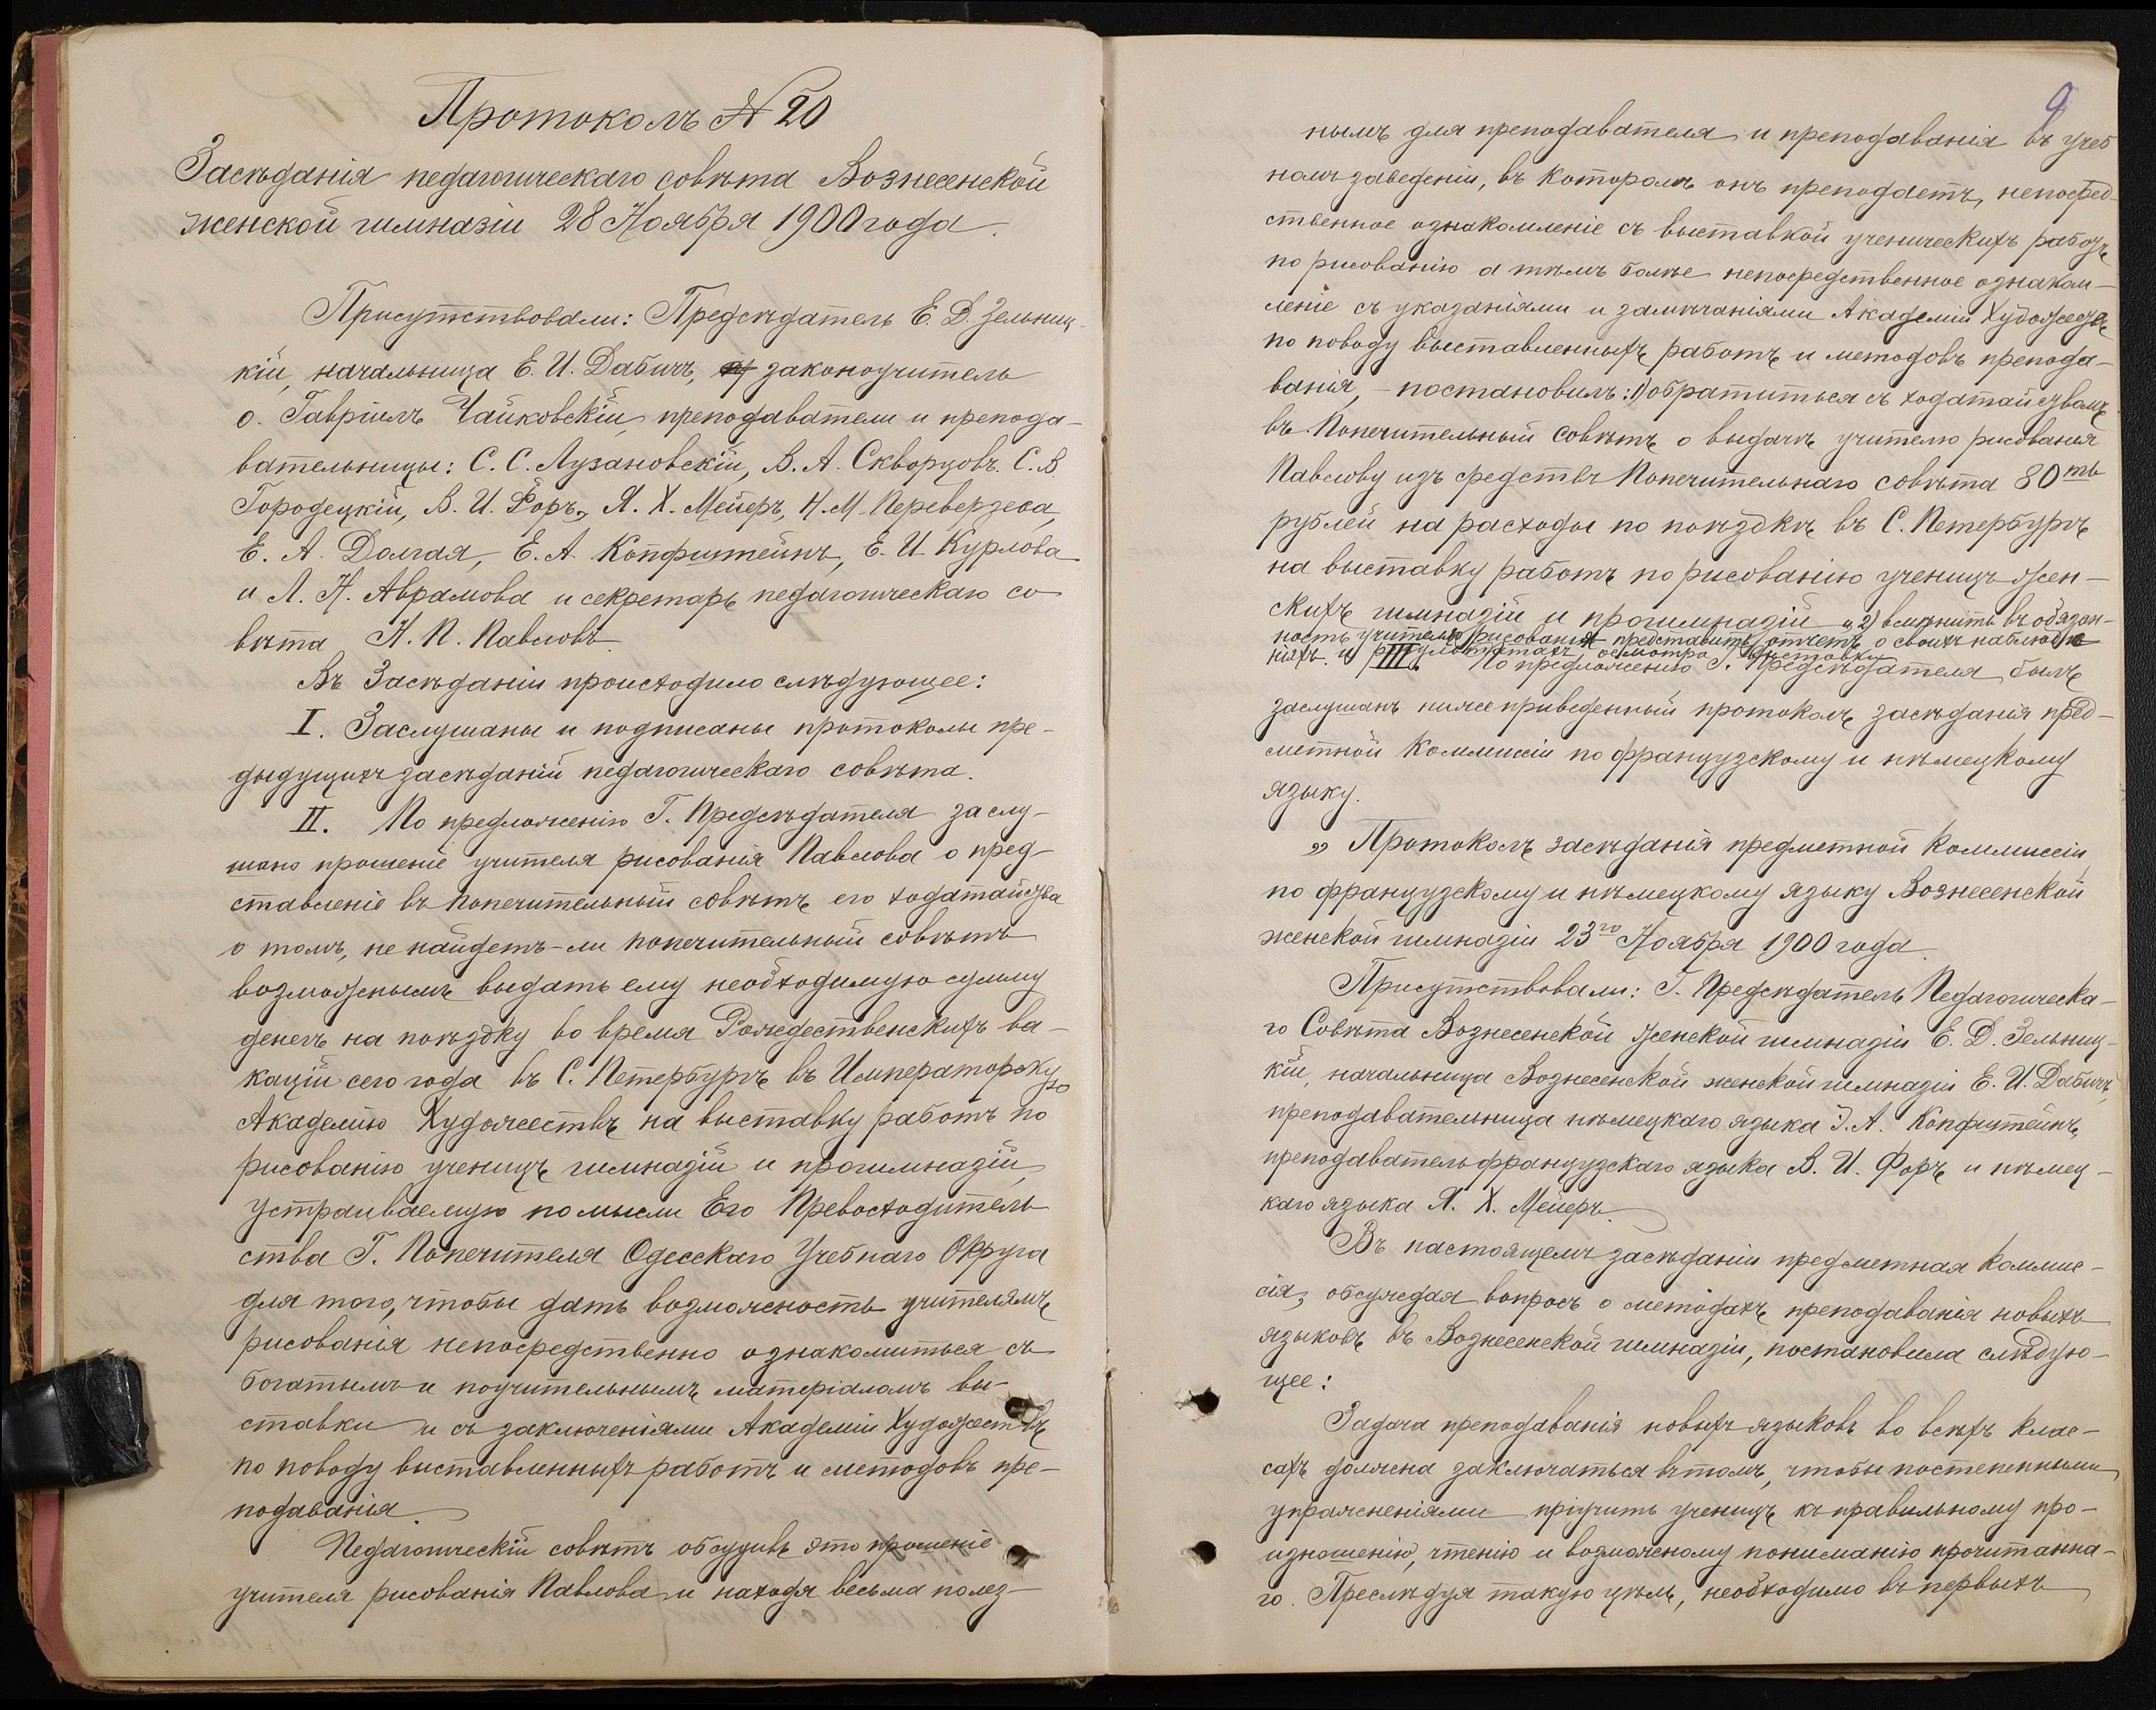 Протоколъ № 20
Засѣданія педагогическаго совѣта Вознесенской
женской гимназіи 28 Ноября 1900 года.
Присутствовали: Предсѣдатель Е. Д. Зельниц-
кій, начальница Е. И. Дабичъ, законоучитель
о. Гавріилъ Чайковскій, преподаватели и препода-
вательницы: С. С. Лузановскій, В. А. Скворцовъ. С. В.
Городецкій, В. И. Форъ, Я. Х. Мейеръ, Н. М. Переверзева,
Е. А. Долгая, Е. А. Копфштейнъ, Е. И. Курлова
и Л. Н. Аврамова и секретарь педагогическаго со-
вѣта Н. П. Павловъ.
Въ Засѣданіи происходило слѣдующее:
I. Заслушаны и подписаны протоколы пре-
дыдущихъ засѣданій педагогическаго совѣта.
II. По предложенію Г. Предсѣдателя заслу-
шано прошеніе учителя рисованія Павлова о пред-
ставленіе въ попечительный совѣтъ его ходатайства
о томъ, не найдетъ-ли попечительный совѣтъ
возможнымъ выдать ему необходимую сумму
денегъ на поѣздку во время Рождественскихъ ва-
кацій сего года въ С. Петербургъ въ Императорскую
Академію Художествъ на выставку работъ по
рисованію ученицъ гимназій и прогимназій,
устраиваемую по мысли Его Превосходитель
ства Г. Попечителя Одесскаго Учебнаго Округа
для того, чтобы дать возможность учителямъ
рисованія непосредственно ознакомиться съ
богатымъ и поучительнымъ матеріаломъ вы-
ставки и съ заключеніями Академіи Художествъ
по поводу выставленныхъ работъ и методовъ пре-
подаванія.
Педагогическій совѣтъ обсудивъ это прошеніе
учителя рисованія Павлова и находя весьма полез-
9
нымъ для преподавателя и преподаванія въ учеб
номъ заведеніи, въ которомъ онъ преподаетъ, непосред-
ственное ознакомленіе съ выставкой ученическихъ работъ
по рисованію а тѣмъ болѣе непосредственное ознаком-
леніе съ указаніями и замѣчаніями Академіи Художествъ
по поводу выставленныхъ работъ и методовъ препода-
ванія, - постановилъ: 1) обратиться съ ходатайствомъ
въ Попечительный совѣтъ о выдачѣ учителю рисованія
Павлову изъ средствъ Попечительнаго совѣта 80ть
рублей на расходы по поѣздкѣ въ С. Петербургъ
на выставку работъ по рисованію ученицъ жен-
скихъ гимназій и прогимназій и 2) вмѣнить въ обязан-
ность учителю рисованія представить отчетъ о своихъ наблюде
ніяхъ и результатахъ осмотра выставки.
III. По предложенію Г. Предсѣдателя былъ
заслушанъ нижеприведенный протоколъ засѣданія пред-
метной коммиссіи по французскому и нѣмецкому
языку.
„Протоколъ засѣданія предметной коммиссіи
по французскому и нѣмецкому языку Вознесенской
женской гимназіи 23го Ноября 1900 года.
Присутствовали: Г. Предсѣдатель Педагогическа-
го Совѣта Вознесенской женской гимназіи Е. Д. Зельниц-
кій, начальница Вознесенской женской гимназіи Е. И. Дабичъ,
преподавательница нѣмецкаго языка Э. А. Копфштейнъ,
преподаватель французскаго языка В. И. Форъ и нѣмец-
каго языка Я. Х. Мейеръ.
Въ настоящемъ засѣданіи предметная коммис-
сія, обсуждая вопросъ о методахъ преподаванія новыхъ
языковъ въ Вознесенской гимназіи, постановила слѣдую-
щее:
Задача преподаванія новыхъ языковъ во всѣхъ клас-
сахъ должна заключаться въ томъ, чтобы постепенными
упражненіями пріучить ученицъ къ правильному про-
изношенію, чтенію и возможному пониманію прочитанна-
го. Преслѣдуя такую цѣль, необходимо въ первыхъ